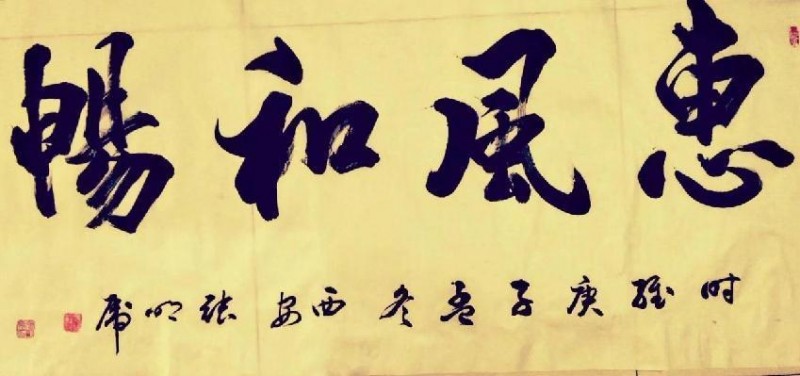 惠風和暢
时維庚子孟冬西安張明虎